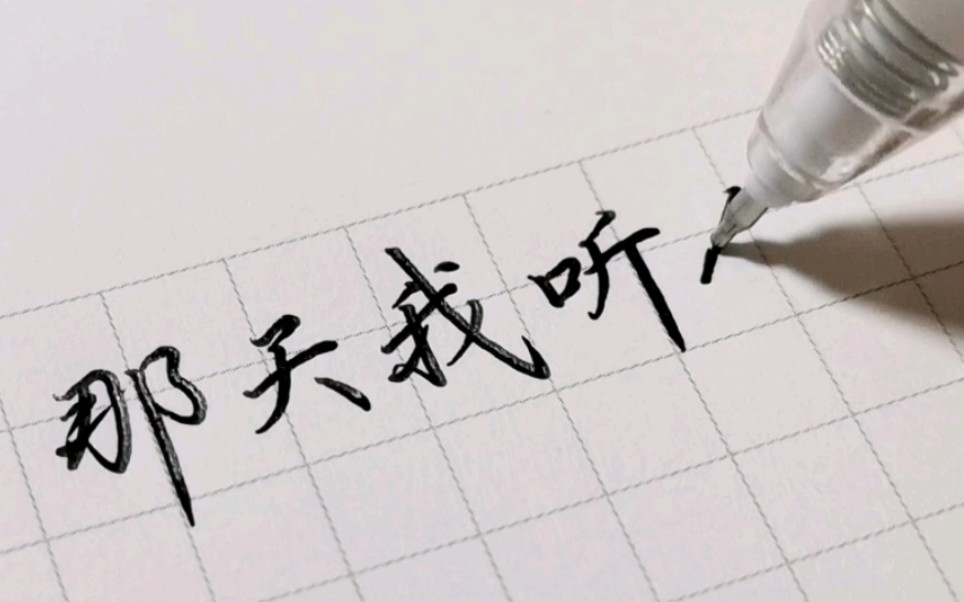 那天我听